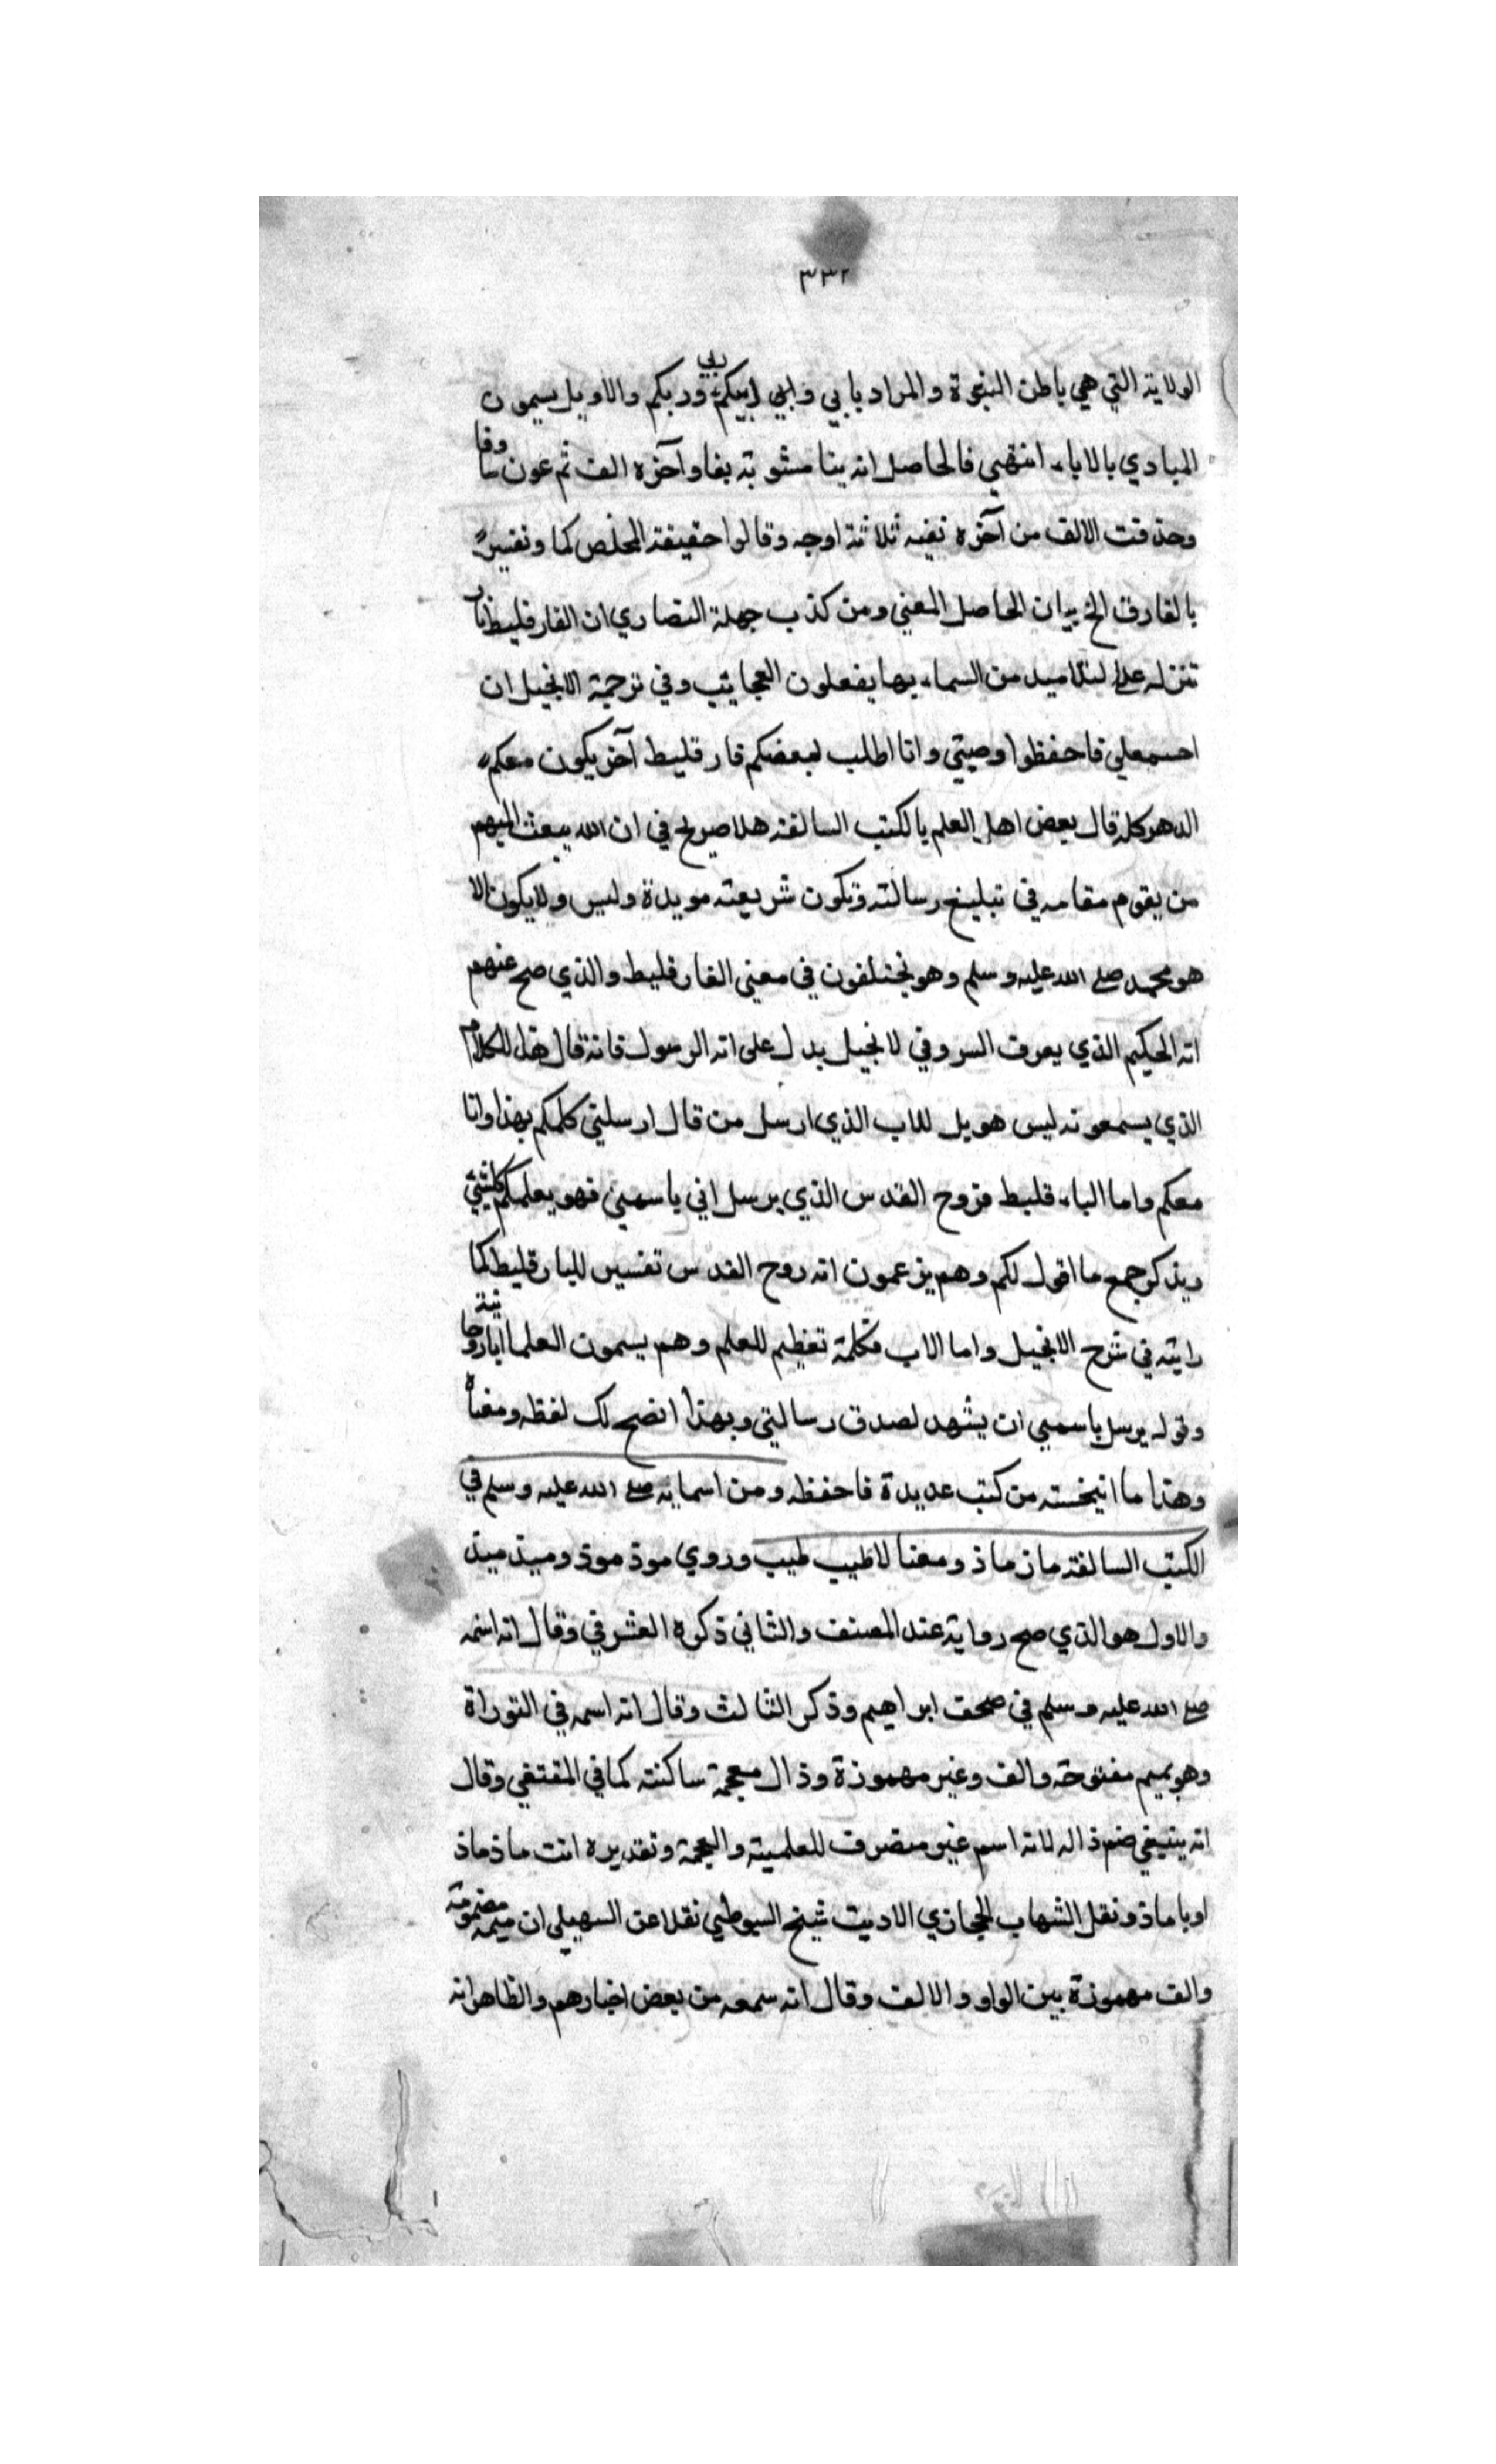 ٣٣٢
الولاية التي هي باطن النبوة والمراد بابي وابي ابيكم ربي وربكم والاويل يسمون
المبادي بالاباء انتهي فالحاصل انه بنا مشوبة بفا وآخره الف ثم عون وفا
وحذفت الالف من آخره نفيه ثلاثة اوجه وقالوا حقيقته المخلص كما وتفسيره
بالفارق الخ بيان الحاصل المعني ومن كذب جهلة النصاري ان الفارقليط نار
تنزله علي لتلاميد من السماء بها يفعلون العجايب وفي ترجمة الانجيل ان
احسمعلي فاحفظوا وصيتي وانا اطلب لبعضكم فارقليط آخر يكون معكم
الدهر كله قال بعض اهل العلم بالكتب السالفة هلا صريح في ان الله يبعث اليهم
من يقوم مقامه في تبليغ رسالته وتكون شريعته مويدة وليس ولا يكون الا
هو محمد صلي الله عليه وسلم وهو نختلفون في معني الفارقليط والذي صح عنهم
انه الحكيم الذي يعرف السر وفي لانجيل يدل على انه الرسول فانه قال هذا الكلام
الذي يسمعونه ليس هويل للاب الذي ارسل من قال ارسلتي كلمكم بهذا وانا
معكم واما الباء قليط فروح القدس الذي يرسل اني ياسمي فهو يعلمكم كلشئ
ويذكر جمع ما اقول لكم وهم يزعمون انه روح القدس تفسير للبارقليط كما
رايته في شرح الانجيل واما الاب فكلمة تعظيم للعلم وهم يسمون العلما ابا روحا نية
وقوله يرسل باسمي ان يشهد لصدق رسالتي وبهذا اتضح لك لفظه ومعناه
وهذا ما انتخسته من كتب عديدة فاحفظه ومن اسمايه صلي الله عليه وسلم في
الكتب السالفة ماذ ماذ ومعنا لاطيب طيب وروي موذ موذ وميذ ميذ
والاول هو الذي صح رواية عند المصنف والثاني ذكره الغشرفي وقال انه اسمه
صلي الله عليه وسلم في صحف ابراهيم وذكر الثالث وقال انه اسمه في التوراة
وهو بميم مفتوحة والف وغير مهموزة وذال معجمة ساكنته كما في المقتفي وقال
انه ينبغي ضم ذاله لانه اسم غير منصرف للعلمية والعجمة وتقديره انت ماذ ماذ
او يا ماذ ونقل الشهاب الحجازي الاديب شيخ السيوطي نقلا عن السهيلي ان ميمه مضمومة
والف مهموزة بين الواو والالف وقال انه سمعه من بعض اخبارهم والظاهر انه